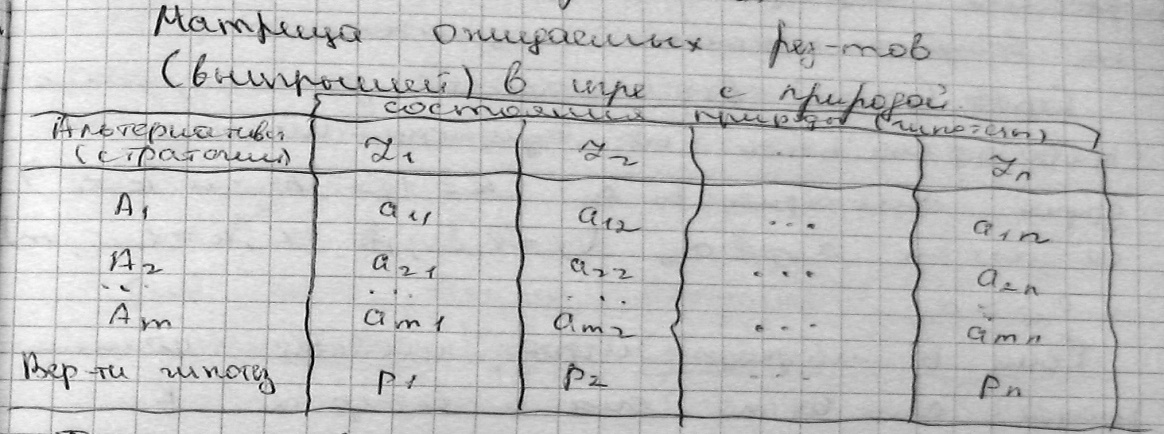 Матрица ожидаемых рез-тов
(выигрышей) в игре с природой.
Альтернативы состояния природы (гипотезы)
(стратегии) Z₁ Z₂ ... Zₙ
A₁ a₁₁ a₁₂ ... a₁ₙ
A₂ a₂₁ a₂₂ ... a₂ₙ
... ... ... ...
Aₘ aₘ₁ aₘ₂ ... aₘₙ
Вер-ти гипотез p₁ p₂ ... pₙ